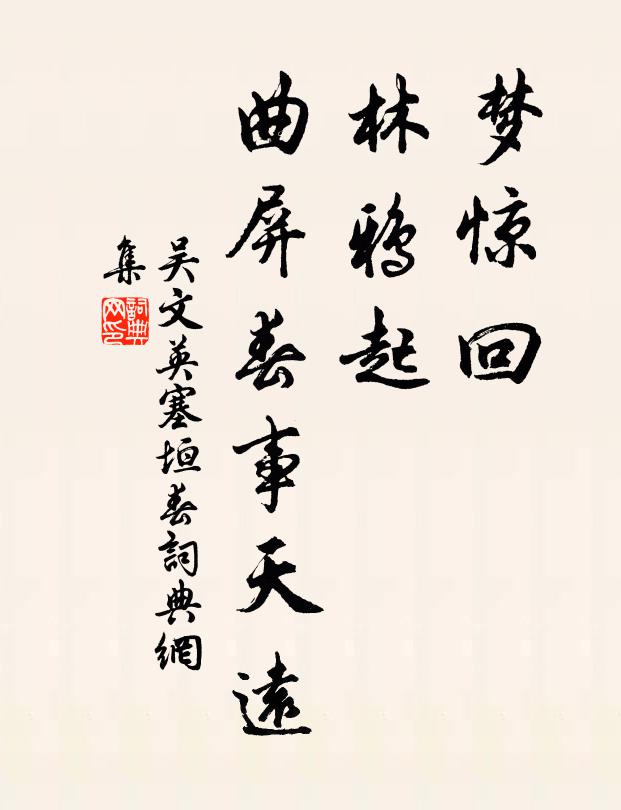 梦惊回
林鸦起
曲屏春事天遠
吴文英塞垣春詞典網
集
詞典网印